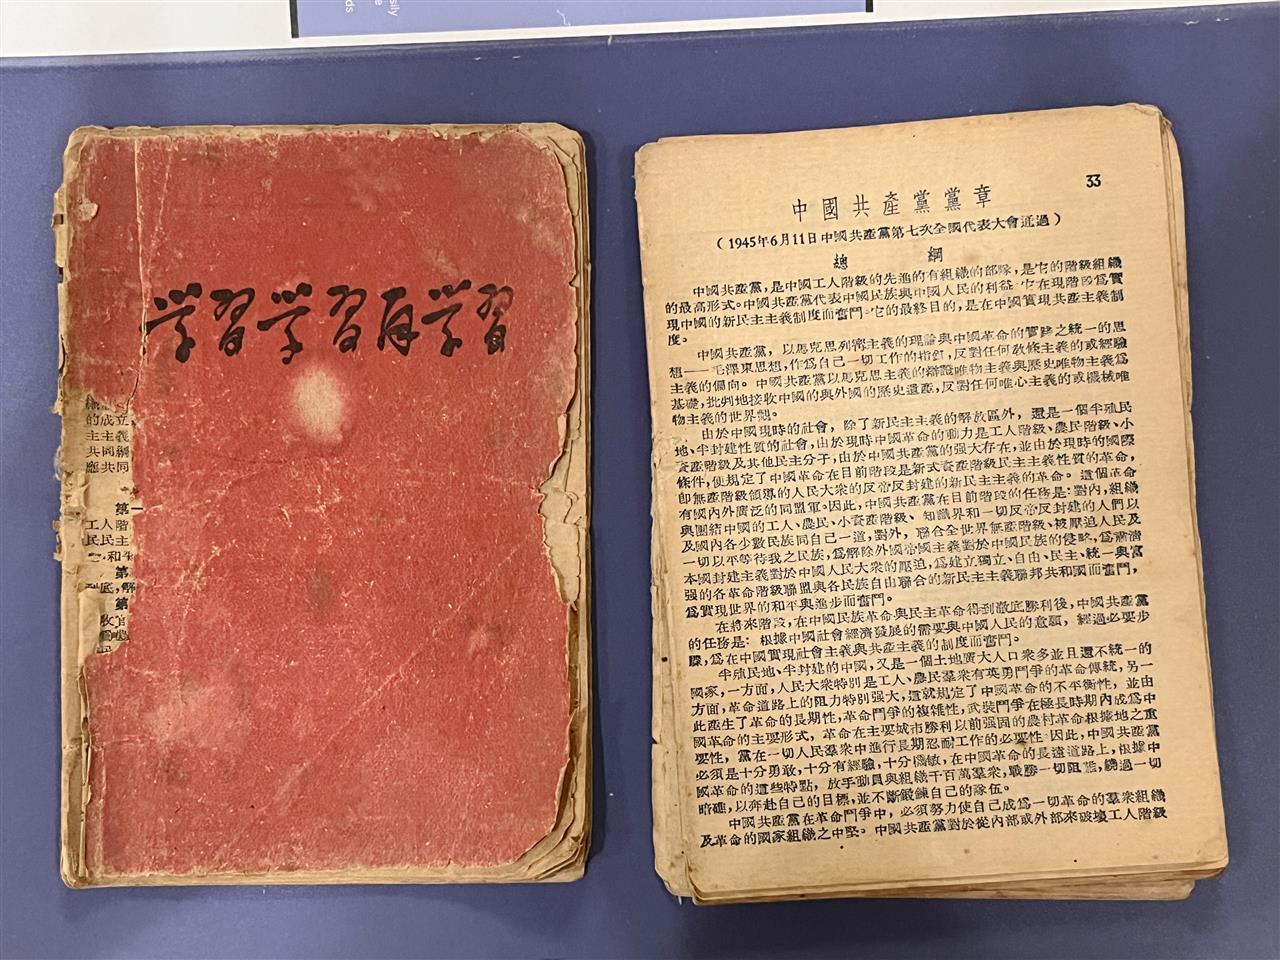 sily
e
ds
学習学習再学習
的成立
主主義
共同綱
應共同
第一
工人階
民民主
第
到底,解
第
33
中國共產黨黨章
(1945年6月11日中國共產黨第七次全國代表大會通過)
總綱
中國共產黨,是中國工人階級的先進的有組織的部隊,是它的階級組織
的最高形式。中國共產黨代表中國民族與中國人民的利益。它在現階段爲實
現中國的新民主主義制度而奮鬥。它的最終目的,是在中國實現共產主義制
度。
中國共產黨,以馬克思列寧主義的理論與中國革命的實踐之統一的思
想——毛澤東思想,作爲自己一切工作的指針,反對任何教條主義的或經驗
主義的偏向。中國共產黨以馬克思主義的辯證唯物主義與歷史唯物主義爲
基礎,批判地接收中國的與外國的歷史遺產,反對任何唯心主義的或機械唯
物主義的世界觀。
由於中國現時的社會,除了新民主主義的解放區外,還是一個半殖民
地、半封建性質的社會,由於現時中國革命的動力是工人階級、農民階級、小
資產階級及其他民主分子,由於中國共產黨的强大存在,並由於現時的國際
條件,便規定了中國革命在目前階段是新式資產階級民主主義性質的革命,
即無產階級領導的人民大衆的反帝反封建的新民主主義的革命。這個革命
有國內外廣泛的同盟軍。因此,中國共產黨在目前階段的任務是:對內,組織
與團結中國的工人、農民、小資產階級、知識界和一切反帝反封建的人們以
及國內各少數民族同自己一道,對外,聯合全世界無產階級、被壓迫人民及
一切以平等待我之民族,爲解除外國帝國主義對於中國民族的侵略,爲肅清
本國封建主義對於中國人民大衆的壓迫,爲建立獨立、自由、民主、統一與富
强的各革命階級聯盟與各民族自由聯合的新民主主義聯邦共和國而奮鬥,
爲實現世界的和平與進步而奮鬥。
在將來階段,在中國民族革命與民主革命得到澈底勝利後,中國共產黨
的任務是:根據中國社會經濟發展的需要與中國人民的意願,經過必要步
驟,爲在中國實現社會主義與共產主義的制度而奮鬥。
半殖民地、半封建的中國,又是一個土地廣大人口衆多並且還不統一的
國家,一方面,人民大衆特別是工人、農民羣衆有英勇鬥爭的革命傳統,另一
方面,革命道路上的阻力特別强大,這就規定了中國革命的不平衡性,並由
此產生了革命的長期性,革命鬥爭的複雜性,武裝鬥爭在極長時期內成爲中
國革命的主要形式,革命在主要城市勝利以前强固的農村革命根據地之重
要性,黨在一切人民羣衆中進行長期忍耐工作的必要性。因此,中國共產黨
必須是十分勇敢,十分有經驗,十分機敏,在中國革命的長遠道路上,根據中
國革命的這些特點,放手動員與組織千百萬羣衆,戰勝一切阻難,繞過一切
暗礁,以奔赴自己的目標,並不斷鍛鍊自己的隊伍。
中國共產黨在革命鬥爭中,必須努力使自己成爲一切革命的羣衆組織
及革命的國家組織之中堅。中國共產黨對於從內部或外部來破壞工人階級